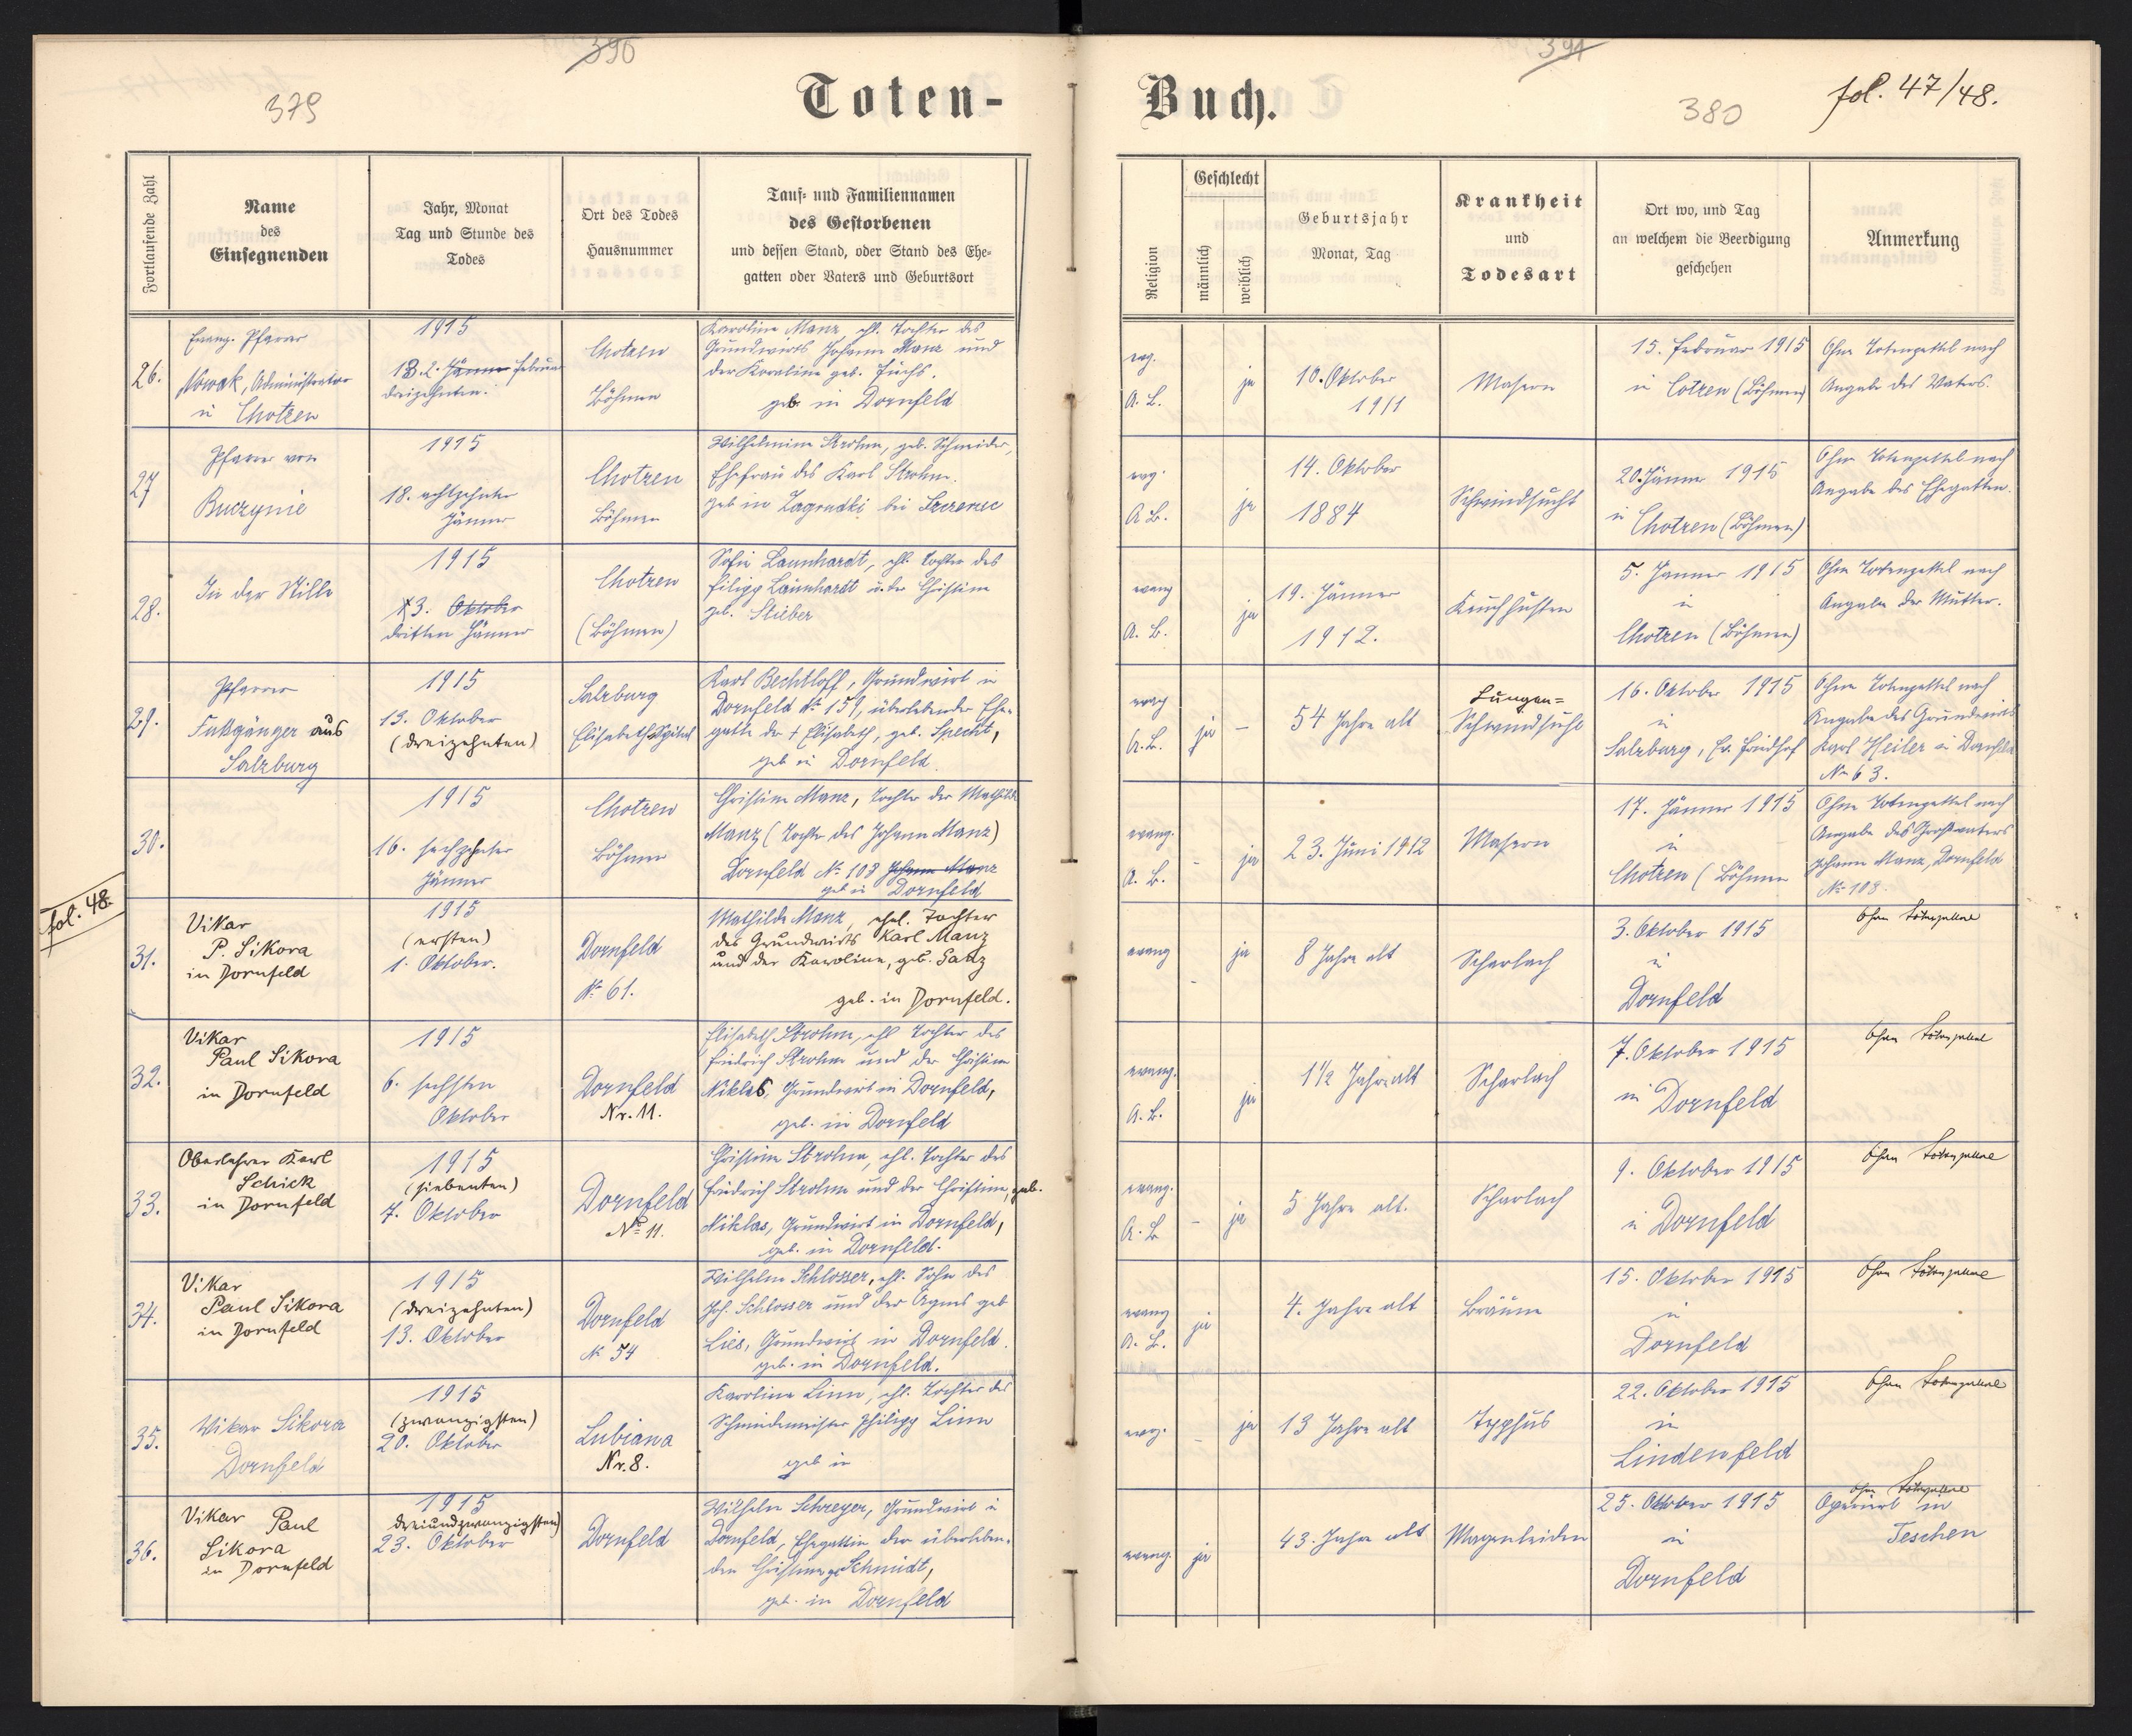 390
379
Toten-
Fortlaufende Zahl
Name
des
Einsegnenden
Jahr, Monat
Tag und Stunde des
Todes
Ort des Todes
Hausnummer
Tauf- und Familiennamen
des Gestorbenen
und dessen Stand, oder Stand des Ehe-
gatten oder Vaters und Geburtsort
26.
Evang. Pfarrer
Nowak, Administrator
in Chotzen
1915
13. 2. Jänner Februar
dreizehnten.
Chotzen
Böhmen
Karoline Manz, ehl. Tochter des
Grundwirts Johann Manz und
der Karoline geb. Fuchs.
geb in Dornfeld
27
Pfarrer von
Buczynie
1915
18. achtzehnter
Jänner
Chotzen
Böhmen
Wilhelmine Strohm, geb. Schneider,
Ehefrau des Karl Strohm.
geb in Zagrudki bei Szczerzec
28.
In der Stille
1915
3. Oktober
dritten Jänner
Chotzen
(Böhmen)
Sofie Launhardt, ehl. Tochter des
Filipp Launhardt und der Christine
geb. Stieber
29.
Pfarrer
Fußgänger aus
Salzburg
1915
13. Oktober
(dreizehnten)
Salzburg
Elisabeth Spital
Karl Bechtloff, Grundwirt in
Dornfeld № 159, überlebender Ehe-
gatte der † Elisabeth, geb. Specht,
geb in Dornfeld.
30.
1915
16. sechzehnter
Jänner
Chotzen
Böhmen
Christine Manz, Tochter der Mathilde
Manz (Tochter des Johann Manz)
Dornfeld № 103 Johann Manz
geb in Dornfeld
fol. 48.
31.
Vikar
P. Sikora
in Dornfeld
1915
(ersten)
1. Oktober.
Dornfeld
№ 61.
Mathilde Manz, ehel. Tochter
des Grundwirts Karl Manz
und der Karoline, geb.
geb. in Dornfeld.
32.
Vikar
Paul Sikora
in Dornfeld
1915
6. sechsten
Oktober
Dornfeld
Nr. 11.
Elisabeth Strohm, ehl Tochter des
Friedrich Strohm und der Christine
Niklas, Grundwirt in Dornfeld,
geb. in Dornfeld
33.
Oberlehrer Karl
Schick
in Dornfeld
1915
(siebenten)
7. Oktober
Dornfeld
№ 11.
Christine Strohm, ehl. Tochter des
Friedrich Strohm und der Christine, geb.
Niklas, Grundwirt in Dornfeld,
geb. in Dornfeld.
34.
Vikar
Paul Sikora
in Dornfeld
1915
(dreizehnten)
13. Oktober
Dornfeld
№ 54
Wilhelm Schlosser, ehl. Sohn des
Joh. Schlosser und der Agnes geb
Lies, Grundwirt in Dornfeld.
geb. in Dornfeld.
35.
Vikar Sikora
Dornfeld
1915
(zwanzigsten)
20. Oktober
Lubiana
Nr. 8.
Karoline Linn, ehl. Tochter des
Schmiedemeister Philipp Linn
geb in
36.
Vikar Paul
Sikora
in Dornfeld
1915
dreiundzwanzigsten)
23. Oktober
Dornfeld
Wilhelm Schreyer, Grundwirt in
Dornfeld, Ehegattin der überleben-
den Christine g. Schmidt,
geb. in Dornfeld
391
Buch.
380
fol. 47/48.
Religion
Geschlecht
männlich
weiblich
Geburtsjahr
Monat, Tag
Krankheit
und
Todesart
Ort wo, und Tag
an welchem die Beerdigung
geschehen
Anmerkung
evg.
A. B.
ja
10. Oktober
1911
Masern
15. Februar 1915
in Cotzen (Böhmen)
Ohne Totenzettel nach
Angabe des Vaters.
evg.
A B.
ja
14. Oktober
1884
Schwindsucht
20. Jänner 1915
in Chotzen (Böhmen)
Ohne Totenzettel nach
Angabe des Ehegatten.
evang
A. B.
ja
19. Jänner
1912.
Keuchhusten
5. Janner 1915
in
Chotzen (Böhmen)
Ohne Totenzettel nach
Angabe der Mutter.
evag
A. B.
ja –
54 Jahre alt
Lungen=
Schwindsucht
16. Oktober 1915
in
Salzburg, Ev. Friedhof
Ohne Totenzettel nach
Angabe des Grundwirts
Karl Heiler in Dornfeld
№ 63.
evang.
A. B.
- ja
23. Juni 1912
Masern
17. Jänner 1915
in
Chotzen (Böhmen
Ohne Totenzettel nach
Angabe des Großvaters
Johann Manz, Dornfeld
№ 103.
evang
- ja
8 Jahre alt
Scharlach
3. Oktober 1915
in
Dornfeld
Ohne Totenzettel
evang.
A. B.
ja
1½ Jahre alt
Scharlach
7. Oktober 1915
in Dornfeld
Ohne Totenzettel
evang.
A. B
- ja
5 Jahre alt.
Scharlach
9. Oktober 1915
in Dornfeld
Ohne Totenzettel
evang
A. B.
ja
4. Jahre alt
Bräune
15. Oktober 1915
in
Dornfeld
Ohne Totenzettel
evg.
- ja
13 Jahre alt
Typhus
22. Oktober 1915
in
Lindenfeld
Ohne Totenzettel
evang.
ja
43. Jahre alt
Magenleiden
25. Oktober 1915
in
Dornfeld
Ohne Totenzettel
Operiert in
Teschen